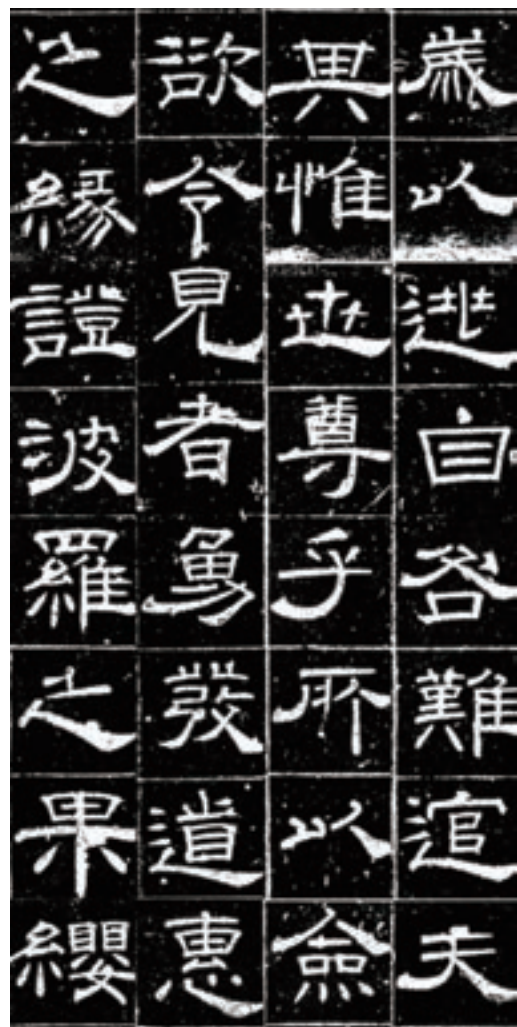 歲以逃自咎難逭夫
異惟世尊乎所以僉
欲令見者勇發道惠
之緣證波羅之果纓